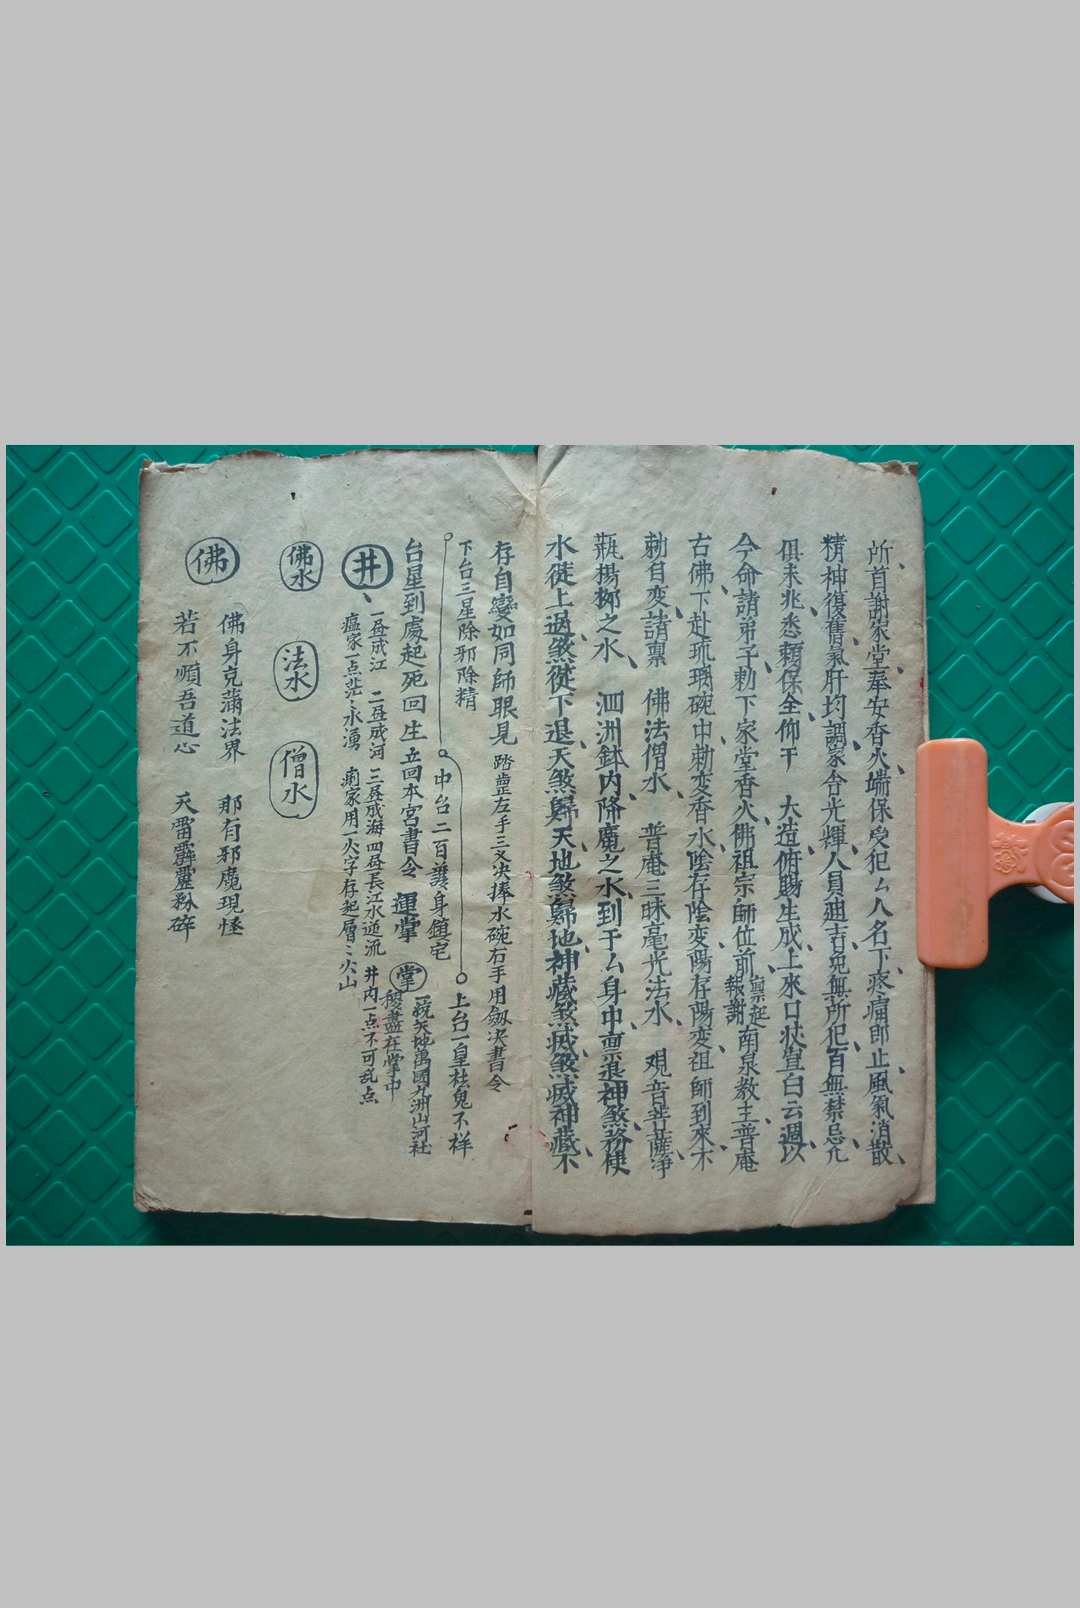 所首謝家堂奉安香火端保受犯厶人名下疼痛即止風氣消散
精神復舊氣肝均調家舍光輝人員廸吉兔無所犯百無禁忌凢
俱未兆悉賴保全仰干 大造俯賜生成上來口狀宣白云週以
今命請弟子勅下家堂香火佛祖宗師位前
稟逛
報謝
南泉教主普庵
古佛下赴琉璃碗中勅变香水陰存陰变陽存陽变祖師到來不
勅自变請稟 佛法僧水 普庵三昧毫光法水 观音菩薩淨
瓶揚柳之水 泗洲鉢内降魔之水到于厶身中稟退神煞務使
水徒上過煞從下退天煞歸天地煞歸地神藏煞滅煞滅神藏不
存自變如同師眼見 踏罡左手三义决捧水碗右手用劔决書令
下台三星除邪除精
中台二百護身鎮宅
上台一皇袪鬼不祥
台星到處起死回生 立回本宮書令 運掌
掌
一統天地萬國九洲山河社
稷盡在掌中
井
一昼成江 二昼成河 三昼成海 四昼長江水逆流 井内一点不可乱点
瘟家一点茫〻永湧 痢家用一火字存起層〻火山
佛水
法水
僧水
佛
佛身克蒲法界 那有邪魔現怪
若不順吾道心 天雷霹靂粉碎